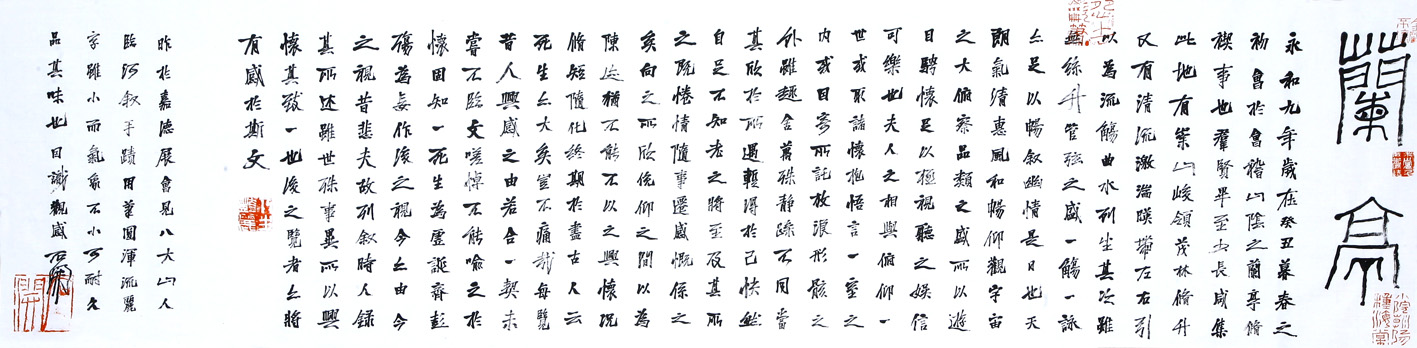 蘭亭
永和九年歲在癸丑暮春之
初會於會稽山陰之蘭亭脩
禊事也羣賢畢至少長咸集
此地有崇山峻領茂林脩竹
又有清流激湍暎帶左右引
以為流觴曲水列坐其次雖
無絲竹管弦之盛一觴一詠
亦足以暢敘幽情是日也天
朗氣清惠風和暢仰觀宇宙
之大俯察品類之盛所以遊
目騁懷足以極視聽之娛信
可樂也夫人之相與俯仰一
世或取諸懷抱悟言一室之
內或因寄所託放浪形骸之
外雖趣舍萬殊靜躁不同當
其欣於所遇暫得於己快然
自足不知老之將至及其所
之既惓情隨事遷感慨係之
矣向之所欣俛仰之間以為
陳迹猶不能不以之興懷況
脩短隨化終期於盡古人云
死生亦大矣豈不痛哉每覽
昔人興感之由若合一契未
嘗不臨文嗟悼不能喻之於
懷固知一死生為虛誕齊彭
殤為妄作後之視今亦由今
之視昔悲夫故列敘時人錄
其所述雖世殊事異所以興
懷其致一也後之覽者亦將
有感於斯文
昨於嘉德展會見八大山人
臨河敘手蹟用筆圓渾流麗
字雖小而氣象不小可耐久
品其味也因識觀感